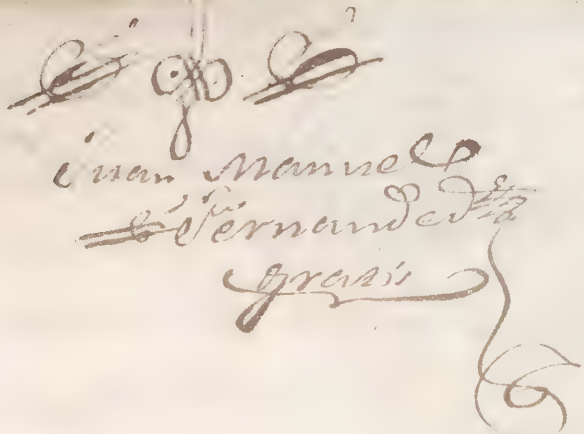 Juan Manuel
Fernandez
gratis